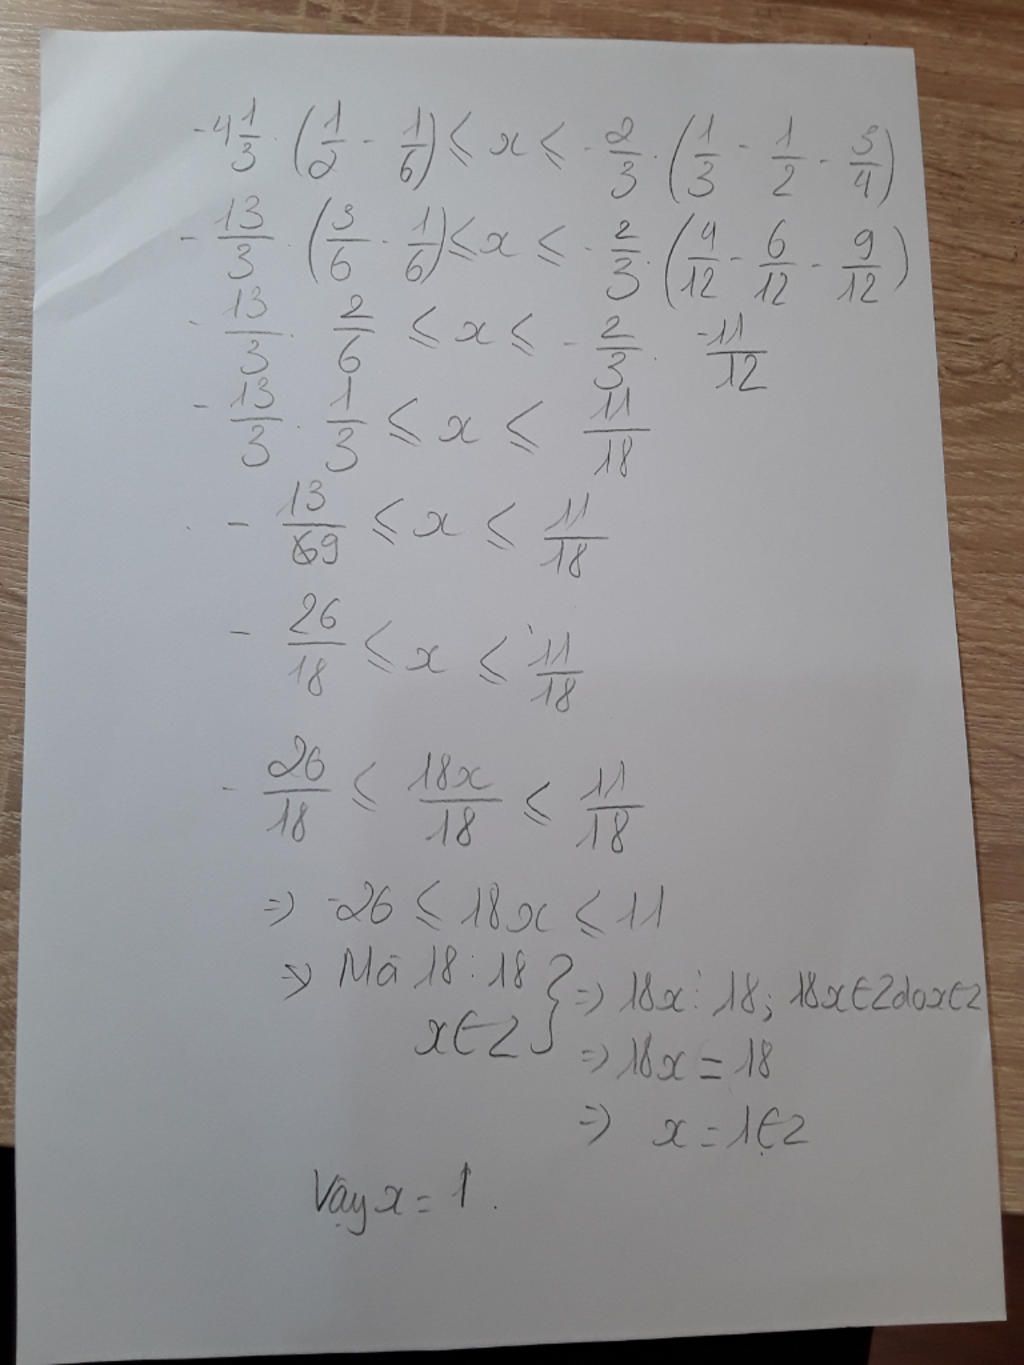 -4 1/3 . (1/2 - 1/6) ≤ x ≤ - 2/3 . (1/3 - 1/2 - 3/4)
- 13/3 . (3/6 - 1/6) ≤ x ≤ - 2/3 . (4/12 - 6/12 - 9/12)
- 13/3 . 2/6 ≤ x ≤ - 2/3 . -11/12
- 13/3 . 1/3 ≤ x ≤ 11/18
- 13/9 ≤ x ≤ 11/18
- 26/18 ≤ x ≤ 11/18
- 26/18 ≤ 18x/18 ≤ 11/18
=> -26 ≤ 18x ≤ 11
=> Mà 18 ⋮ 18
x ∈ Z } => 18x ⋮ 18; 18x ∈ Z do x ∈ Z
=> 18x = 18
=> x = 1 ∈ Z
Vậy x = 1.